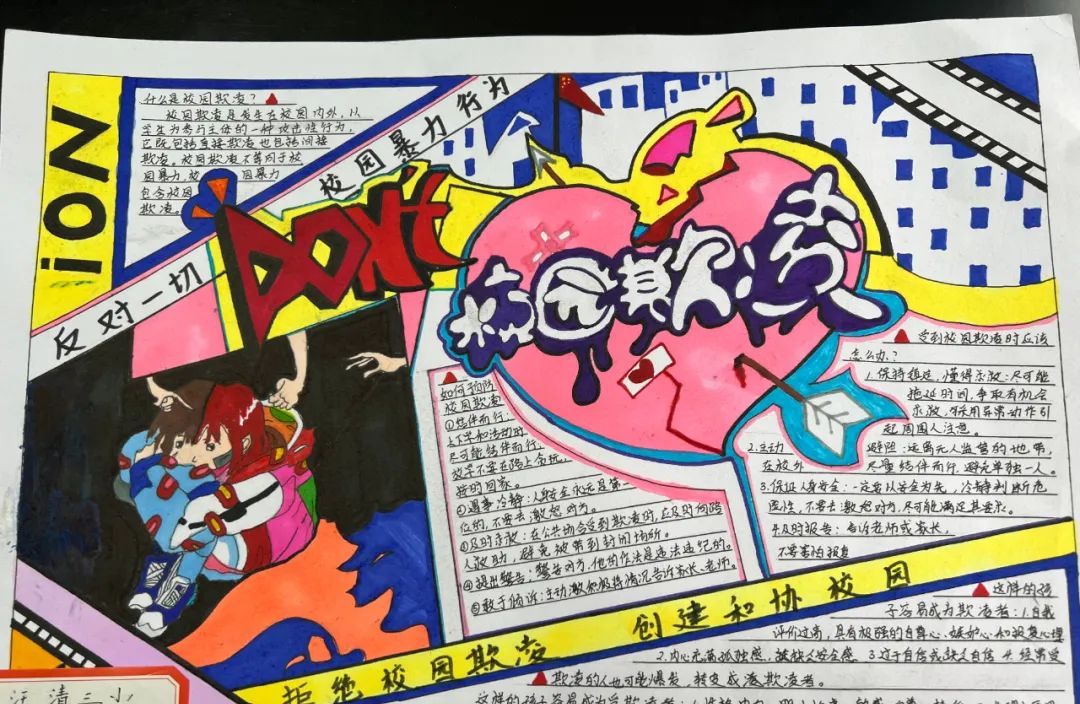 ION
什么是校园欺凌？
校园欺凌是发生在校园内外，以
学生为参与主体的一种攻击性行为，
它既包括直接欺凌也包括间接
欺凌。校园欺凌不等同于校
园暴力，校 园暴力
包含校园
欺凌。
反对一切
校园暴力行为
DON't
校园欺凌
如何预防
校园欺凌
①结伴而行：
上下学和活动时，
尽可能结伴而行，
放学不要在路上贪玩，
按时回家。
②遇事冷静：人身安全永远是第一
位的，不要去激怒对方。
③及时求救：在公共场合受到欺凌时，应及时向路
人救助，避免被带到封闭场所。
④提出警告：警告对方，他的作法是违法违纪的。
⑤敢于倾诉：主动激和极将情况告诉家长、老师。
受到校园欺凌时应该
怎么办？
1.保持镇定，懂得求救：尽可能
拖延时间，争取有机会
求救，采用异常动作引
起周围人注意。
2.主动 避险：远离无人监管的地带，
在校外 尽量结伴而行，避免单独一人。
3.保证人身安全：一定要以安全为先，冷静判断危
险性，不要去激怒对方，尽可能满足其要求。
4.及时报告：告诉老师或家长，
不要害怕报复
拒绝校园欺凌 创建和协校园
这样的孩
子容易成为欺凌者：1.自我
评价过高，具有极强的自尊心、嫉妒心和报复心理
2.内心充满孤独感，被缺乏安全感 3.过于自信或缺乏自信 4.经常受
欺凌的人也可能爆发，转变成凌欺凌者。
这样的孩子容易成为受欺凌者：1.性格内向
汪清三小